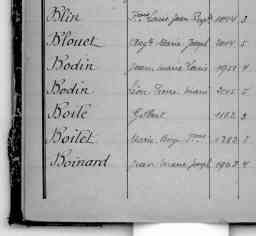 Blin Jean Bapt. 1844 3
Blouet Aug. Marie Joseph 2044 5
Bodin Jean Marie Louis 1958 4
Bodin Léon Pierre Marie 2015 5
Boile Gilbert 1182 3
Boilet Marie 1282 5
Boinard Jean Marie Joseph 1962 4